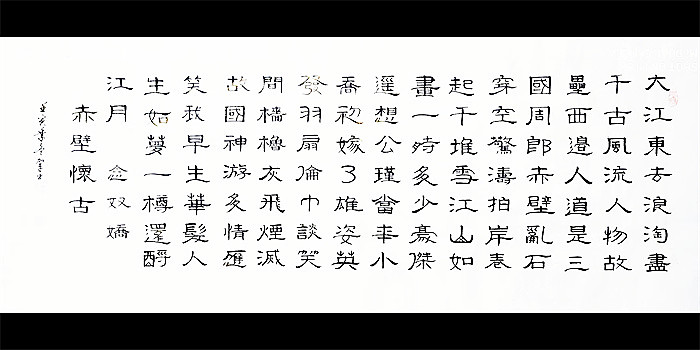 大江東去浪淘盡
千古風流人物故
壘西邊人道是三
國周郎赤壁亂石
穿空驚濤拍岸卷
起千堆雪江山如
畫一時多少豪傑
遥想公瑾當年小
喬初嫁了雄姿英
發羽扇倫巾談笑
間檣櫓灰飛煙滅
故國神游多情應
笑我早生華髮人
生如夢一樽還酹
江月 念奴嬌
赤壁懷古